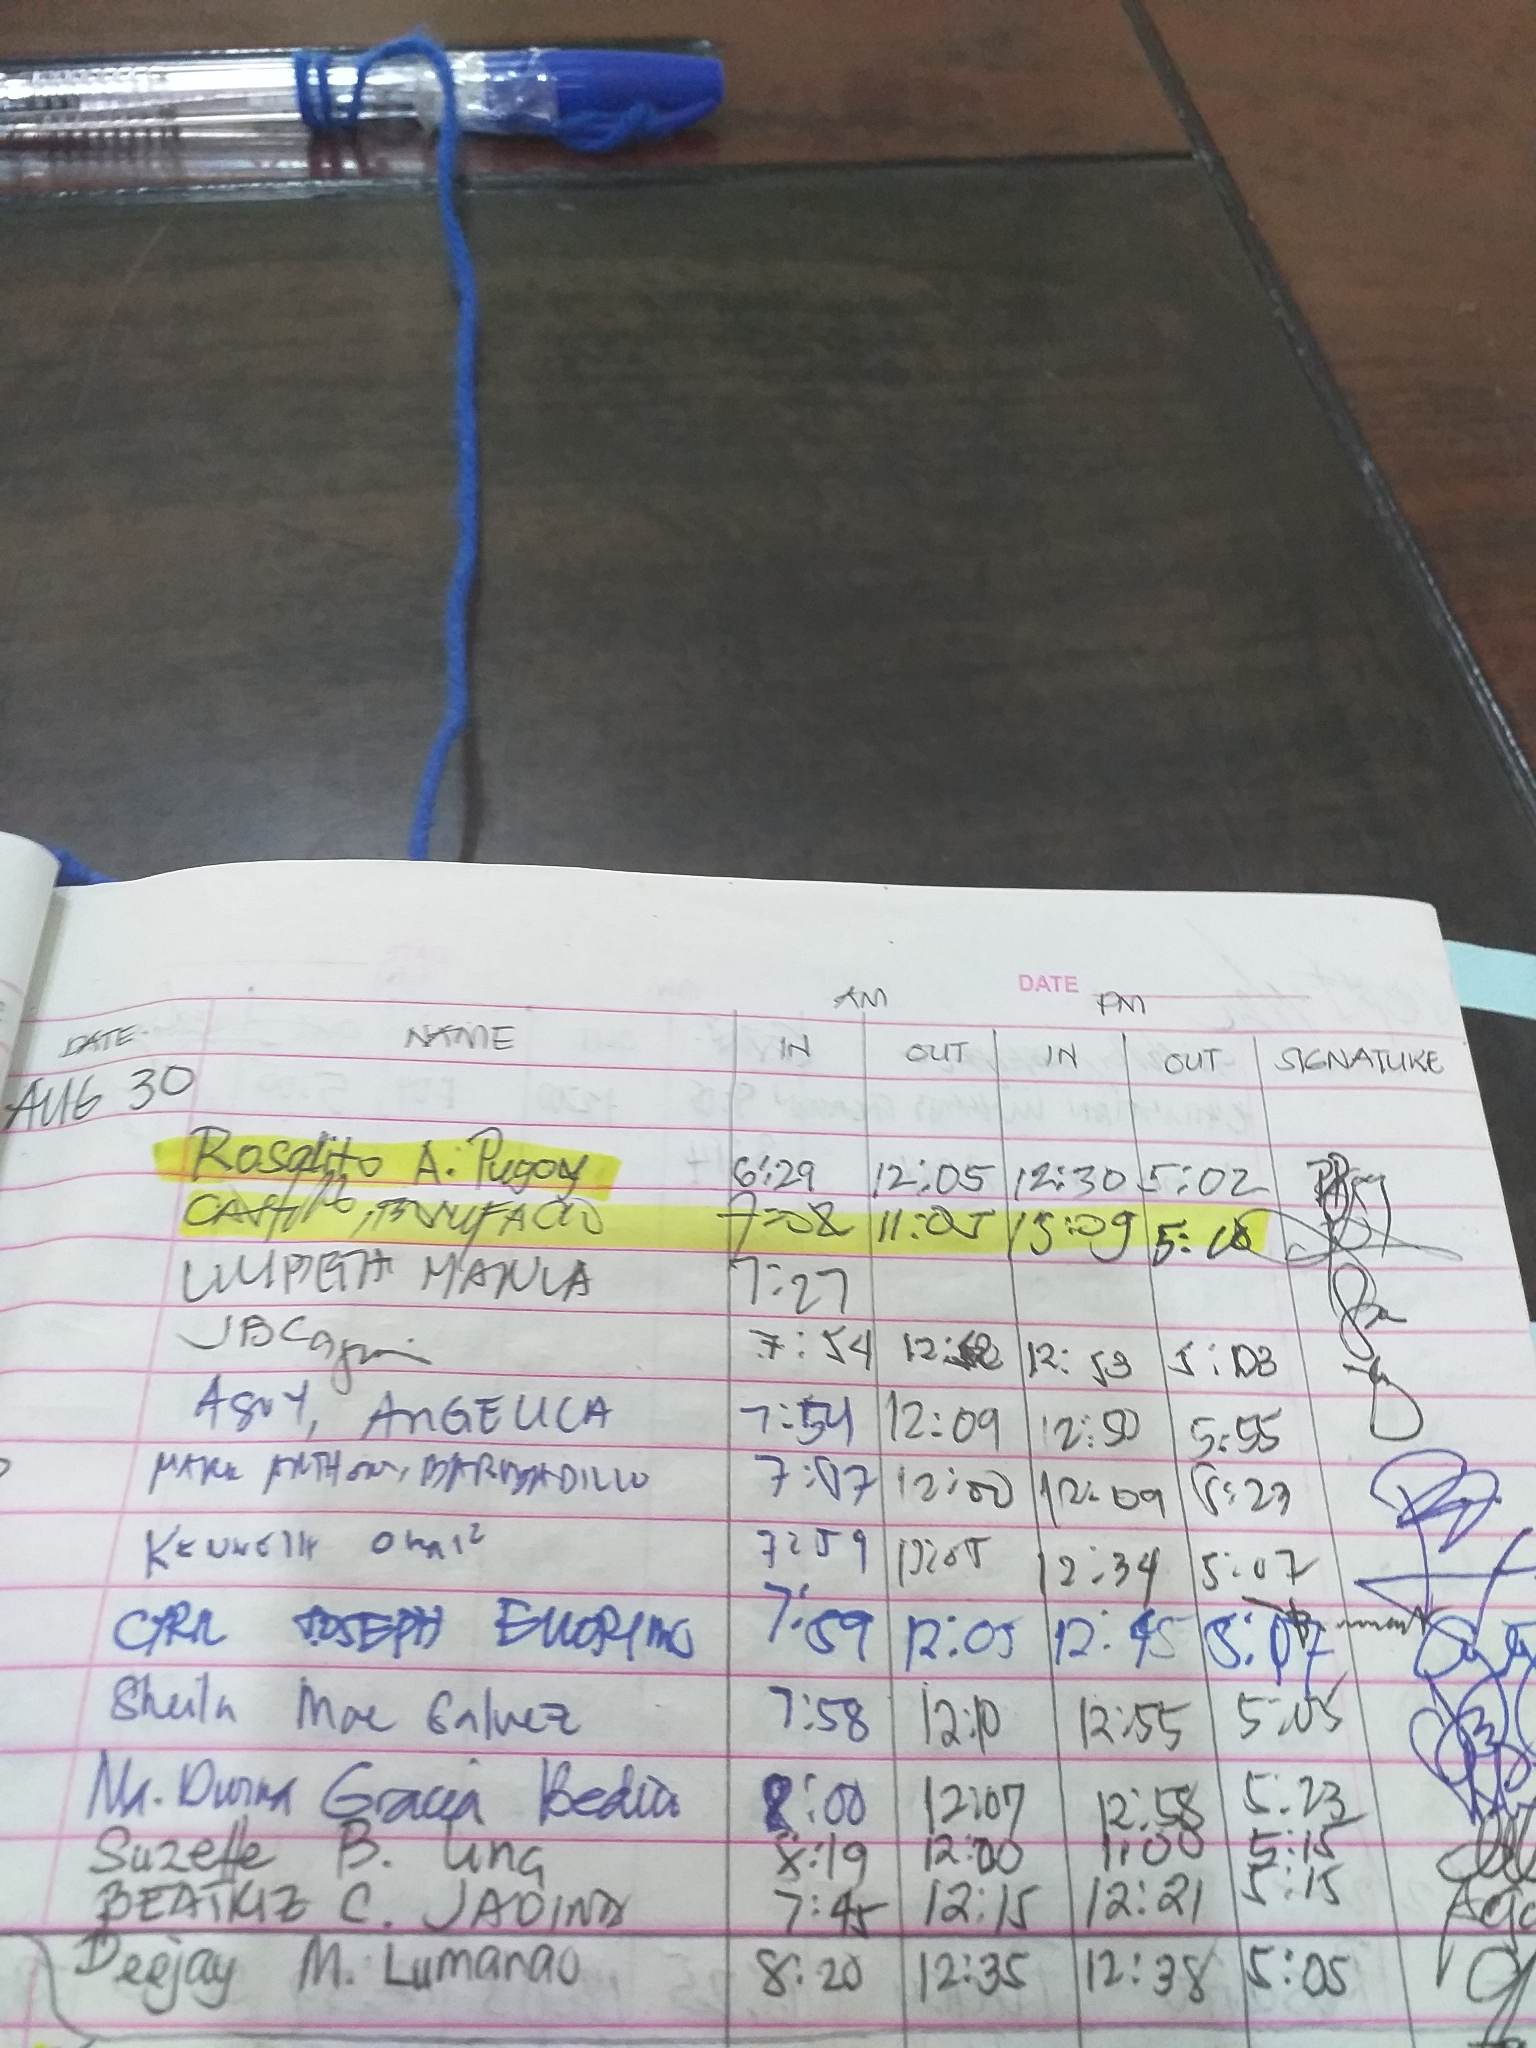 DATE
AM PM
DATE NAME IN OUT IN OUT SIGNATURE
AUG 30
Rosalito A. Pugoy 6:29 12:05 12:30 5:02
CASTILLO, BONIFACIO 7:08 11:05 5:10
MANLA 7:27
JBC 7:54 12: 12:53 5:03
AGUY, ANGELICA 7:54 12:09 12:50 5:55
MARK ANTHONY BARBADILLO 7:07 12:00 12:09 5:23
KENNETH 7:59 12:05 12:34 5:07
JOSEPH 7:59 12:05 12:45 5:07
Sheila Mae Galvez 7:58 12:10 12:55 5:05
Ma. Divina Gracia Bedia 8:00 12:07 12:58 5:23
Suzette B. Ung 8:19 12:00 1:00 5:15
BEATRIZ C. JAOINA 7:45 12:15 12:21 5:15
Deejay M. Lumanao 8:20 12:35 12:38 5:05